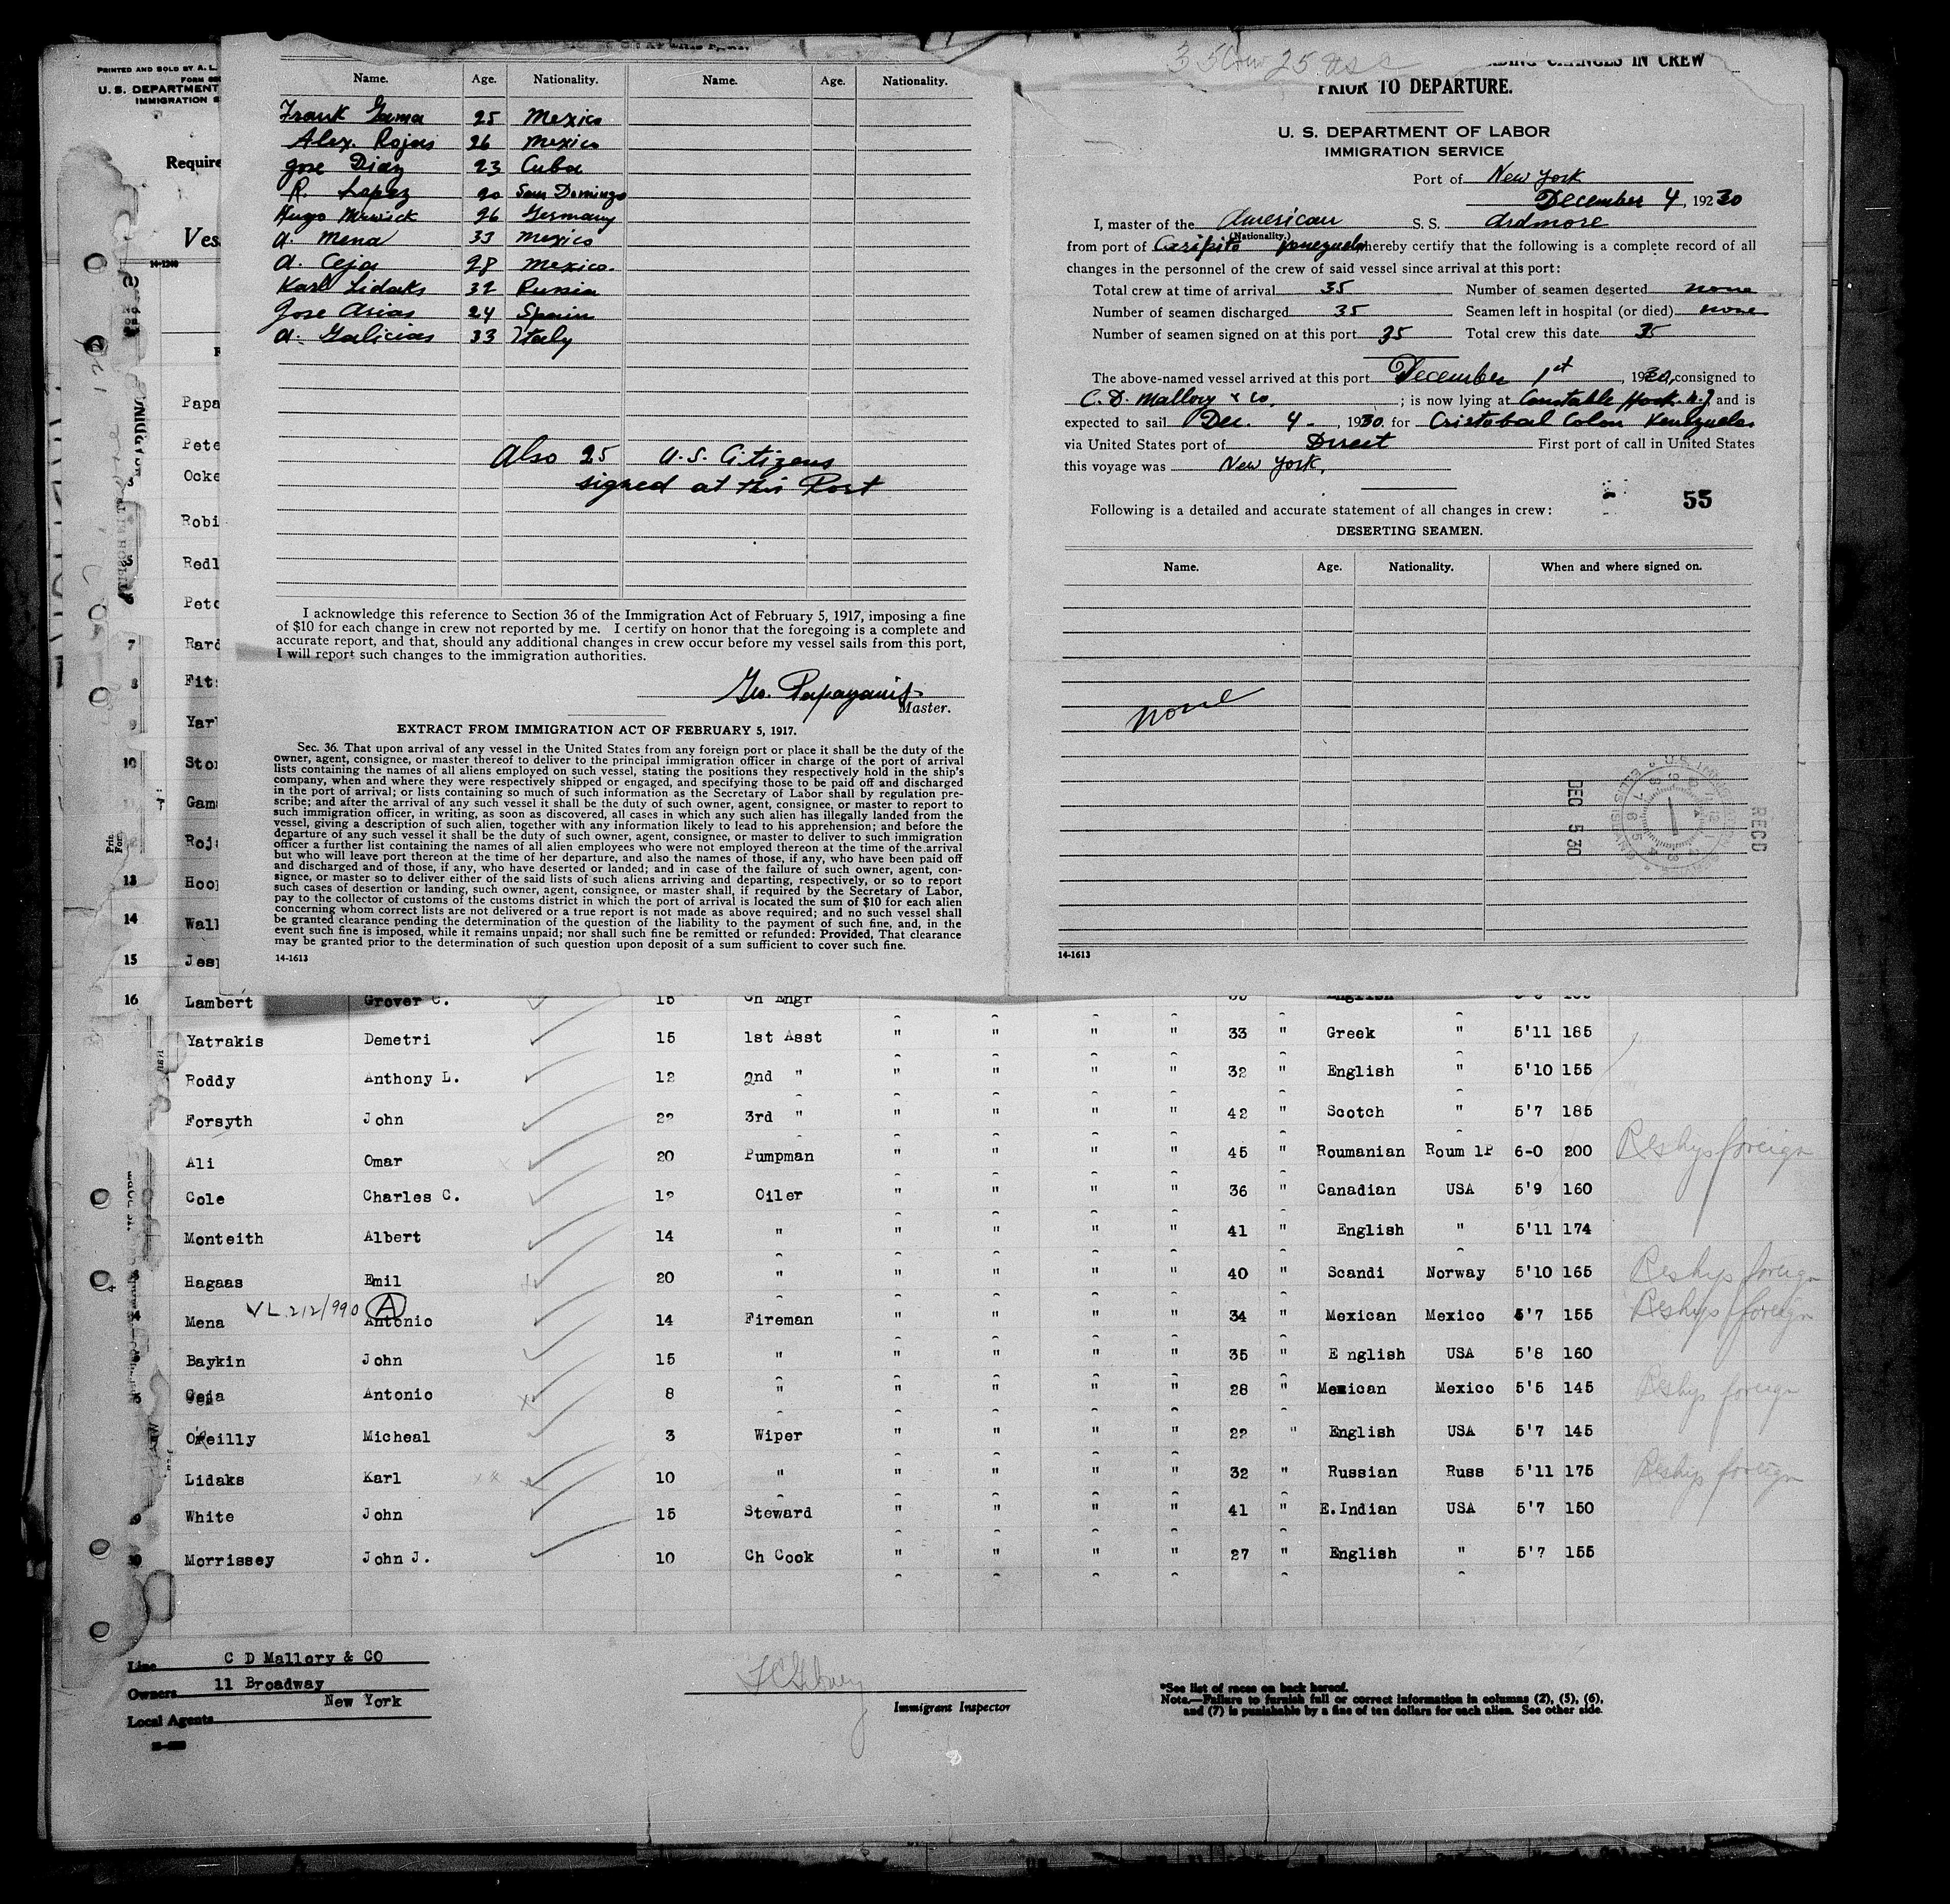 PRINTED AND SOLD BY A. L.
U. S. DEPARTMENT
IMMIGRATION
Require
Ves
14-1240
Papa
Pete
Ocke
Robi
Redl
Pete
7 Rard
8 Fit
9 Yar
10 Sto
Gam
Roj
13 Hoo
14 Wall
15 Jes
Name. Age. Nationality. Name. Age. Nationality.
Frank Gama 25 Mexico
Alex. Rojas 26 Mexico
Jose Diaz 23 Cuba
R. Lopez 20 San Domingo
Hugo 26 Germany
A. Mena 33 Mexico
A. Ceja 28 Mexico.
Karl Lidaks 32 Russia
Jose Arias 24 Spain
A. Galicias 33 Italy
Also 25 U.S. Citizens
signed at this Port
I acknowledge this reference to Section 36 of the Immigration Act of February 5, 1917, imposing a fine
of $10 for each change in crew not reported by me. I certify on honor that the foregoing is a complete and
accurate report, and that, should any additional changes in crew occur before my vessel sails from this port,
I will report such changes to the immigration authorities.
Geo. Papayanis
Master.
EXTRACT FROM IMMIGRATION ACT OF FEBRUARY 5, 1917.
Sec. 36. That upon arrival of any vessel in the United States from any foreign port or place it shall be the duty of the
owner, agent, consignee, or master thereof to deliver to the principal immigration officer in charge of the port of arrival
lists containing the names of all aliens employed on such vessel, stating the positions they respectively hold in the ship's
company, when and where they were respectively shipped or engaged, and specifying those to be paid off and discharged
in the port of arrival; or lists containing so much of such information as the Secretary of Labor shall by regulation pre-
scribe; and after the arrival of any such vessel it shall be the duty of such owner, agent, consignee, or master to report to
such immigration officer, in writing, as soon as discovered, all cases in which any such alien has illegally landed from the
vessel, giving a description of such alien, together with any information likely to lead to his apprehension; and before the
departure of any such vessel it shall be the duty of such owner, agent, consignee, or master to deliver to such immigration
officer a further list containing the names of all alien employees who were not employed thereon at the time of the arrival
but who will leave port thereon at the time of her departure, and also the names of those, if any, who have been paid off
and discharged and of those, if any, who have deserted or landed; and in case of the failure of such owner, agent, con-
signee, or master so to deliver either of the said lists of such aliens arriving and departing, respectively, or so to report
such cases of desertion or landing, such owner, agent, consignee, or master shall, if required by the Secretary of Labor,
pay to the collector of customs of the customs district in which the port of arrival is located the sum of $10 for each alien
concerning whom correct lists are not delivered or a true report is not made as above required; and no such vessel shall
be granted clearance pending the determination of the question of the liability to the payment of such fine, and, in the
event such fine is imposed, while it remains unpaid; nor shall such fine be remitted or refunded: Provided, That clearance
may be granted prior to the determination of such question upon deposit of a sum sufficient to cover such fine.
14-1613
35 Crew 25 USC
CHANGES IN CREW
PRIOR TO DEPARTURE.
U. S. DEPARTMENT OF LABOR
IMMIGRATION SERVICE
Port of New York
December 4, 19230
I, master of the American S. S. Ardmore
(Nationality.)
from port of Caripito Venezuela hereby certify that the following is a complete record of all
changes in the personnel of the crew of said vessel since arrival at this port:
Total crew at time of arrival 35 Number of seamen deserted none
Number of seamen discharged 35 Seamen left in hospital (or died) none
Number of seamen signed on at this port 35 Total crew this date 35
The above-named vessel arrived at this port December 1st, 1930, consigned to
C. D. Mallory & Co. ; is now lying at Constable Hook N.J and is
expected to sail Dec. 4, 1930 for Cristobal Colon Venezuela
via United States port of Direct First port of call in United States
this voyage was New York.
55
Following is a detailed and accurate statement of all changes in crew:
DESERTING SEAMEN.
Name. Age. Nationality. When and where signed on.
none
DEC 5 30
REC'D
14-1613
16 Lambert Grover C. 15 Ch Engr English
Yatrakis Demetri 15 1st Asst " " " " 33 " Greek " 5'11 185
Roddy Anthony L. 12 2nd " " " " " 32 " English " 5'10 155
Forsyth John 22 3rd " " " " " 42 " Scotch " 5'7 185
Ali Omar 20 Pumpman " " " " 45 " Roumanian Roum 1P 6-0 200 Reships foreign
Cole Charles C. 12 Oiler " " " " 36 " Canadian USA 5'9 160
Monteith Albert 14 " " " " " 41 " English " 5'11 174
Hagaas Emil 20 " " " " " 40 " Scandi Norway 5'10 165 Reships foreign
VL 212/990 A
Mena Antonio 14 Fireman " " " " 34 " Mexican Mexico 5'7 155 Reships foreign
Baykin John 15 " " " " " 35 " E nglish USA 5'8 160
Ceja Antonio 8 " " " " " 28 " Mexican Mexico 5'5 145 Reships foreign
OReilly Micheal 3 Wiper " " " " 22 " English USA 5'7 145
Lidaks Karl 10 " " " " " 32 " Russian Russ 5'11 175 Reships foreign
White John 15 Steward " " " " 41 " E.Indian USA 5'7 150
Morrissey John J. 10 Ch Cook " " " " 27 " English " 5'7 155
Line C D Mallory & CO
Owners 11 Broadway
New York
Local Agents
Immigrant Inspector
*See list of races on back hereof.
Note.—Failure to furnish full or correct information in columns (2), (5), (6),
and (7) is punishable by a fine of ten dollars for each alien. See other side.